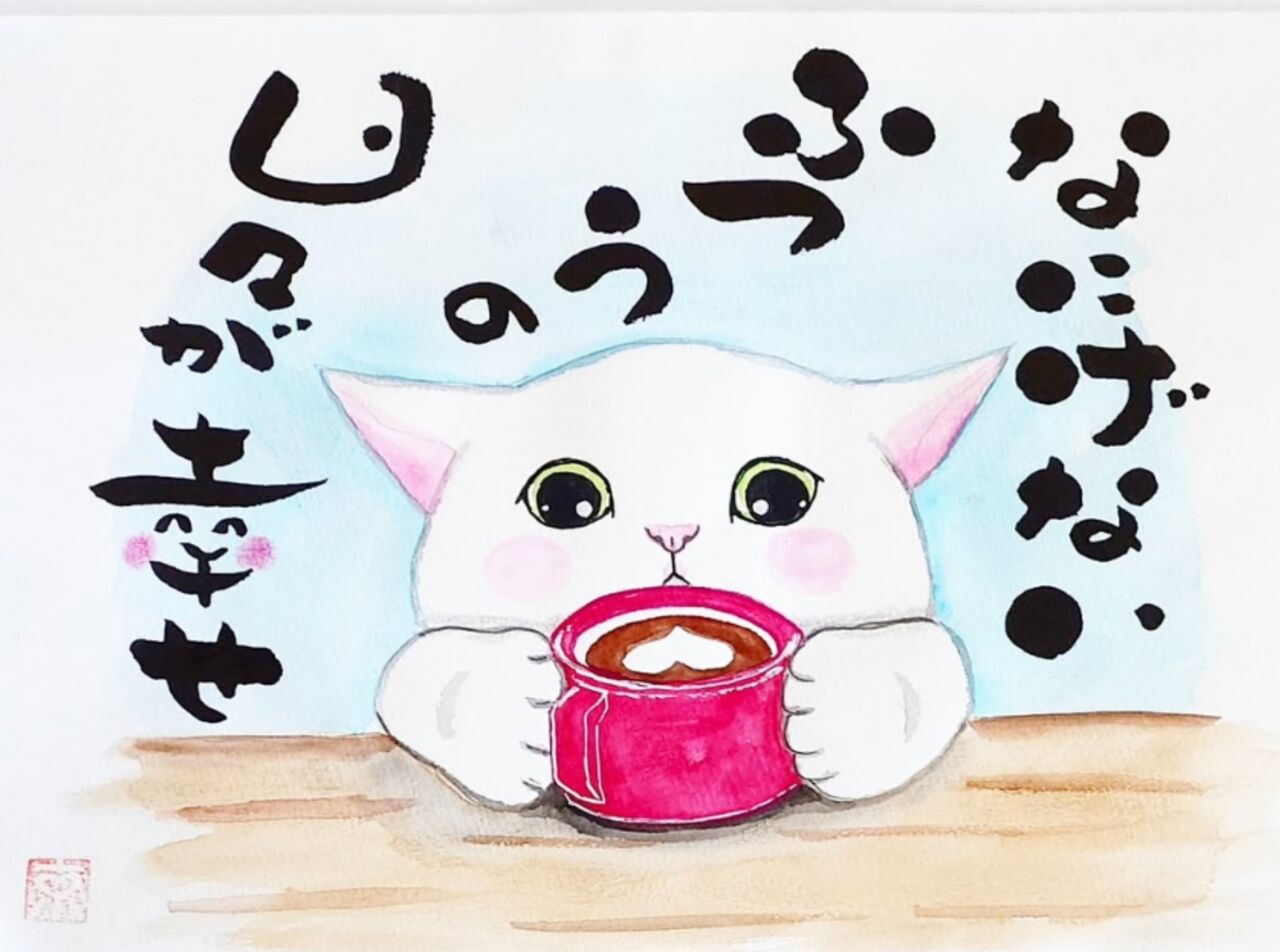 なにげない
ふつうの
日々が
幸せ